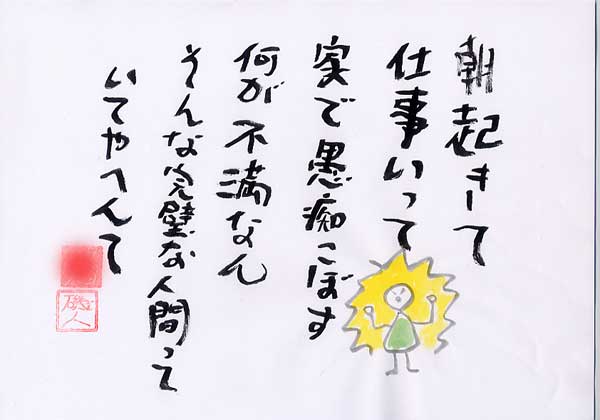 朝起きて
仕事いって
家で愚痴こぼす
何が不満なん
そんな完璧な人間って
いてやへんて